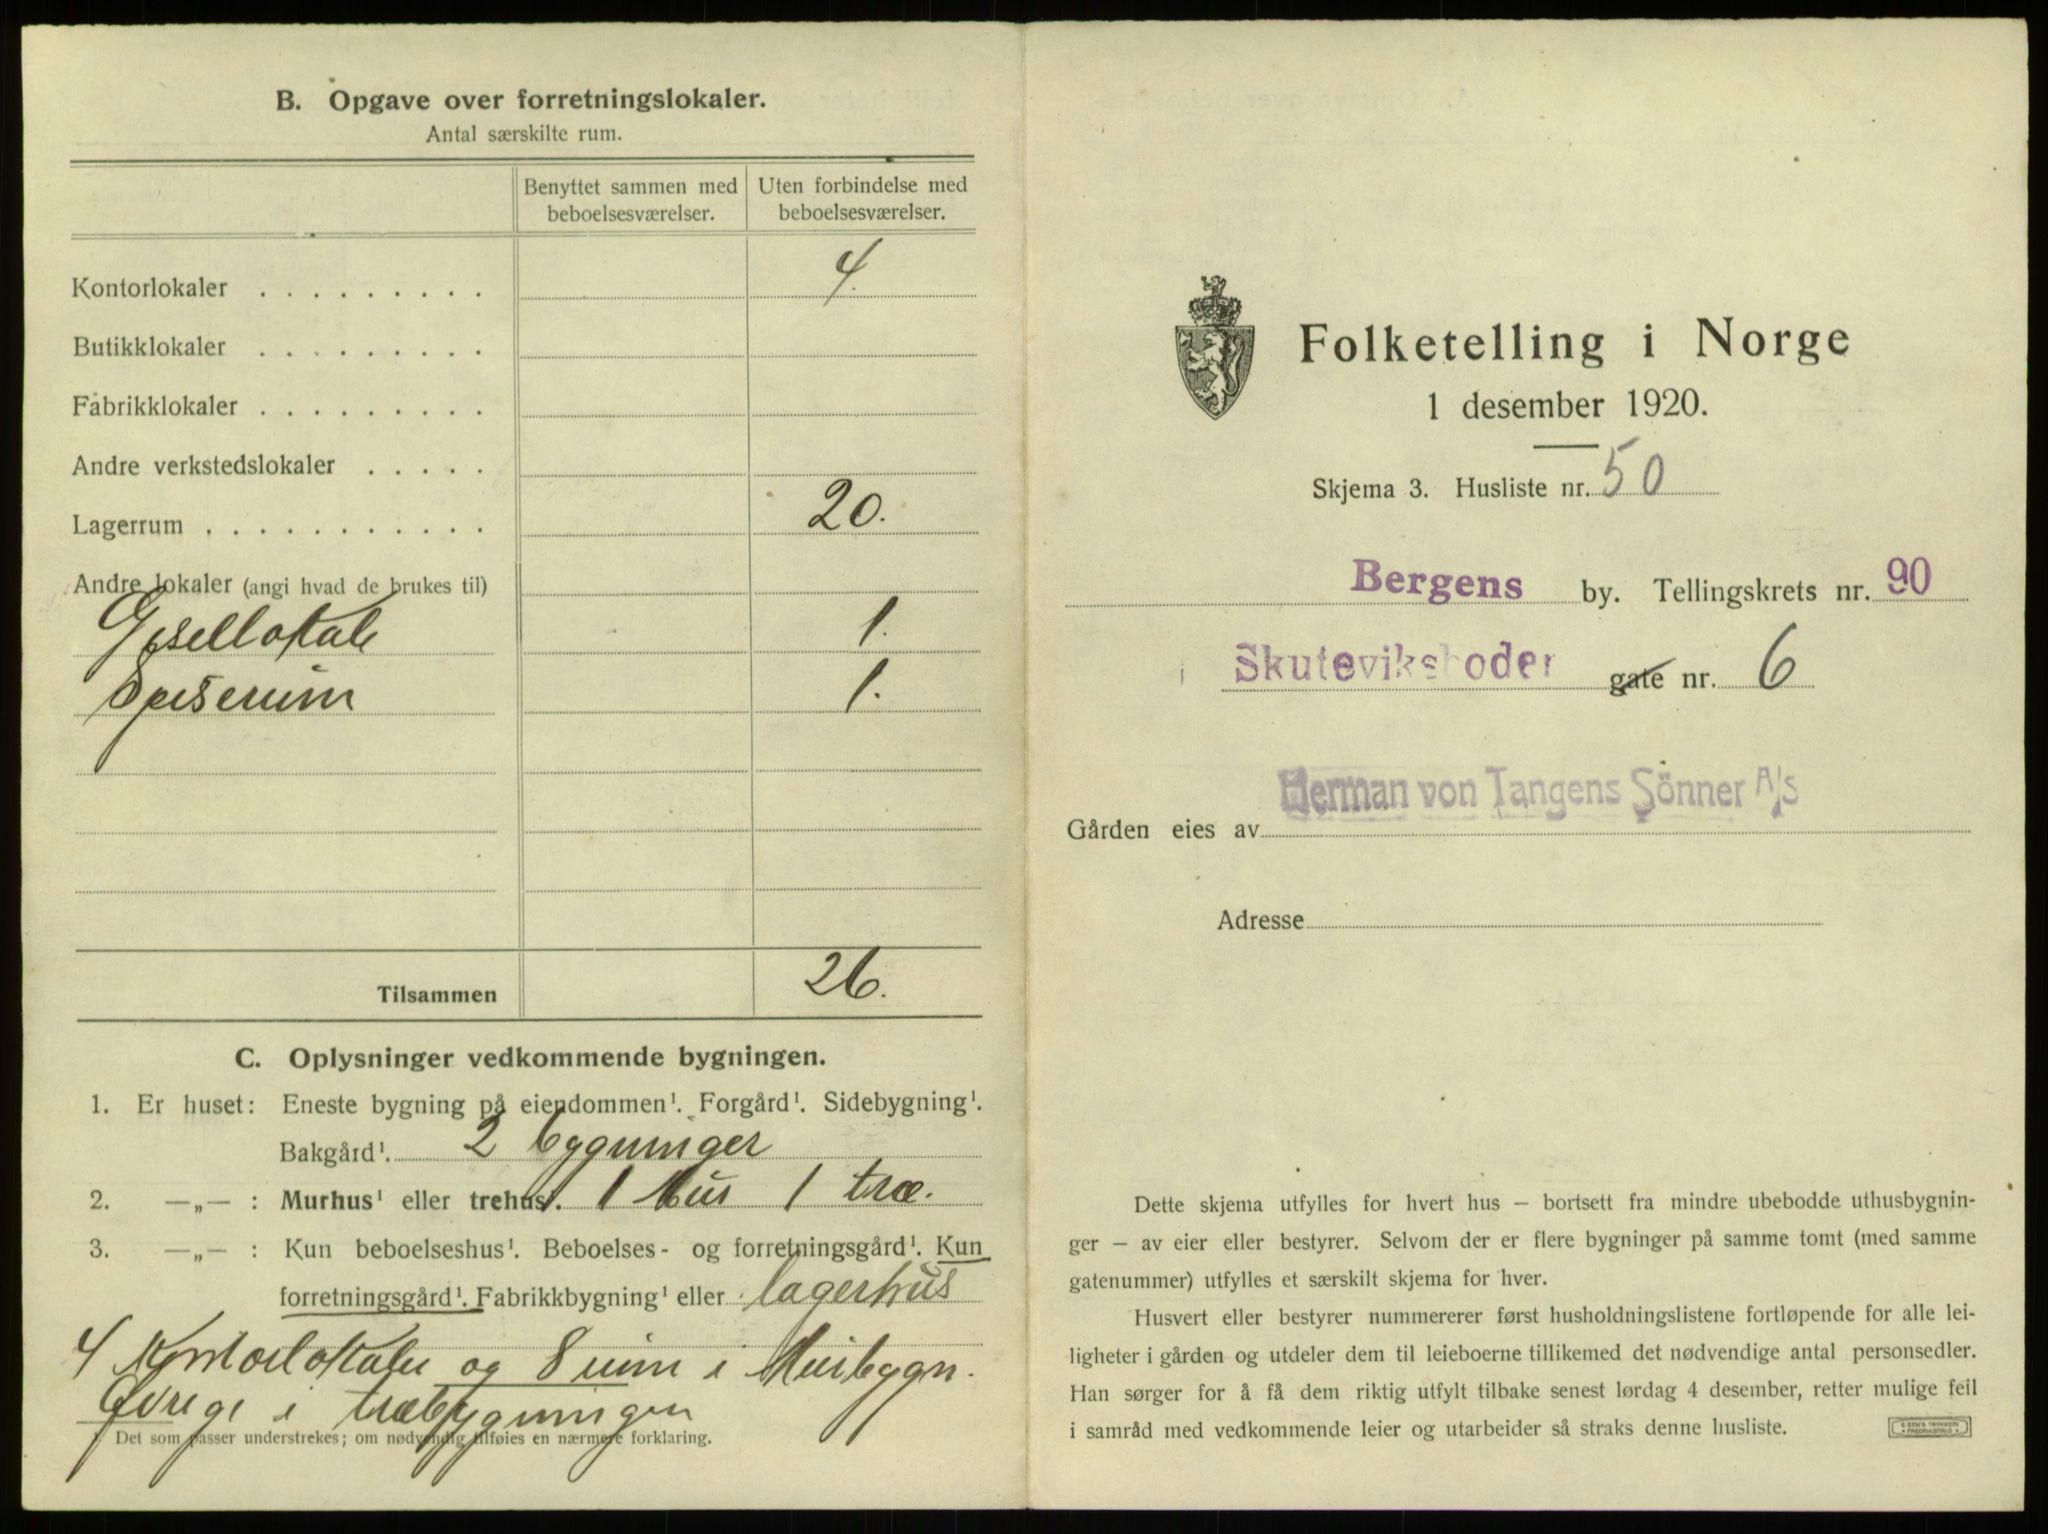 B. Opgave over forretningslokaler.
Antal særskilte rum.
Benyttet sammen med beboelsesværelser.
Uten forbindelse med beboelsesværelser.
Kontorlokaler . . . . . . . . . 4.
Butikklokaler . . . . . . . . .
Fabrikklokaler . . . . . . . . .
Andre verkstedslokaler . . . . .
Lagerrum . . . . . . . . . . . . 20.
Andre lokaler (angi hvad de brukes til)
Gjesellokale 1.
Spiserum 1.
Tilsammen 26.
C. Oplysninger vedkommende bygningen.
1. Er huset: Eneste bygning på eiendommen¹. Forgård¹. Sidebygning¹.
Bakgård¹. 2 bygninger
2. —„— : Murhus¹ eller trehus¹. 1 Mur 1 træ.
3. —„— : Kun beboelseshus¹. Beboelses- og forretningsgård¹. Kun
forretningsgård¹. Fabrikkbygning¹ eller lagerhus
4 Kontorlokaler og 8 rum i Murbygn.
Øvrige i træbygningen
¹ Det som passer understrekes; om nødvendig tilføies en nærmere forklaring.
Folketelling i Norge
1 desember 1920.
Skjema 3. Husliste nr. 50
Bergens by. Tellingskrets nr. 90
Skuteviksboder gate nr. 6
Herman von Tangens Sönner A/S
Gården eies av
Adresse
Dette skjema utfylles for hvert hus – bortsett fra mindre ubebodde uthusbygnin-
ger – av eier eller bestyrer. Selvom der er flere bygninger på samme tomt (med samme
gatenummer) utfylles et særskilt skjema for hver.
Husvert eller bestyrer nummererer først husholdningslistene fortløpende for alle lei-
ligheter i gården og utdeler dem til leieboerne tillikemed det nødvendige antal personsedler.
Han sørger for å få dem riktig utfylt tilbake senest lørdag 4 desember, retter mulige feil
i samråd med vedkommende leier og utarbeider så straks denne husliste.